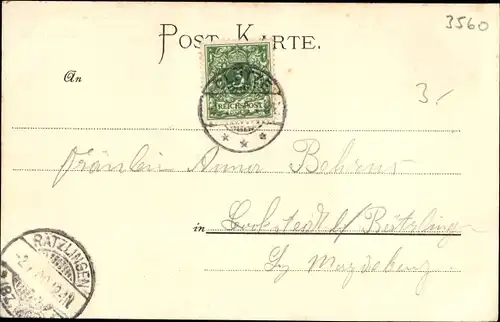 3560
POST KARTE.
An
CLÖTZE
5
REICHSPOST
3/-
Fräulein Anna Behrens
in
Lockstedt b/ Rätzlingen
Bz Magdeburg
RÄTZLINGEN